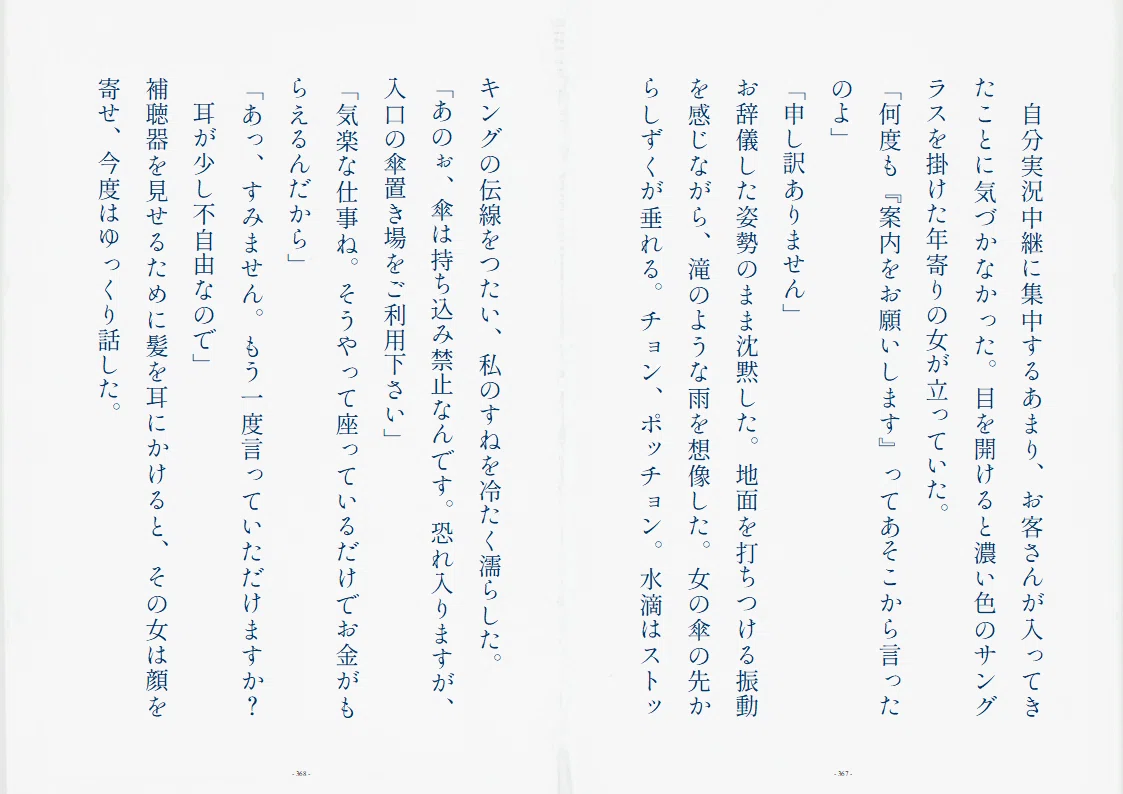 自分実況中継に集中するあまり、お客さんが入ってき
たことに気づかなかった。目を開けると濃い色のサング
ラスを掛けた年寄りの女が立っていた。
「何度も『案内をお願いします』ってあそこから言った
のよ」
「申し訳ありません」
お辞儀した姿勢のまま沈黙した。地面を打ちつける振動
を感じながら、滝のような雨を想像した。女の傘の先か
らしずくが垂れる。チョン、ポッチョン。水滴はストッ
- 367 -
キングの伝線をつたい、私のすねを冷たく濡らした。
「あのぉ、傘は持ち込み禁止なんです。恐れ入りますが、
入口の傘置き場をご利用下さい」
「気楽な仕事ね。そうやって座っているだけでお金がも
らえるんだから」
「あっ、すみません。もう一度言っていただけますか？
耳が少し不自由なので」
補聴器を見せるために髪を耳にかけると、その女は顔を
寄せ、今度はゆっくり話した。
- 368 -